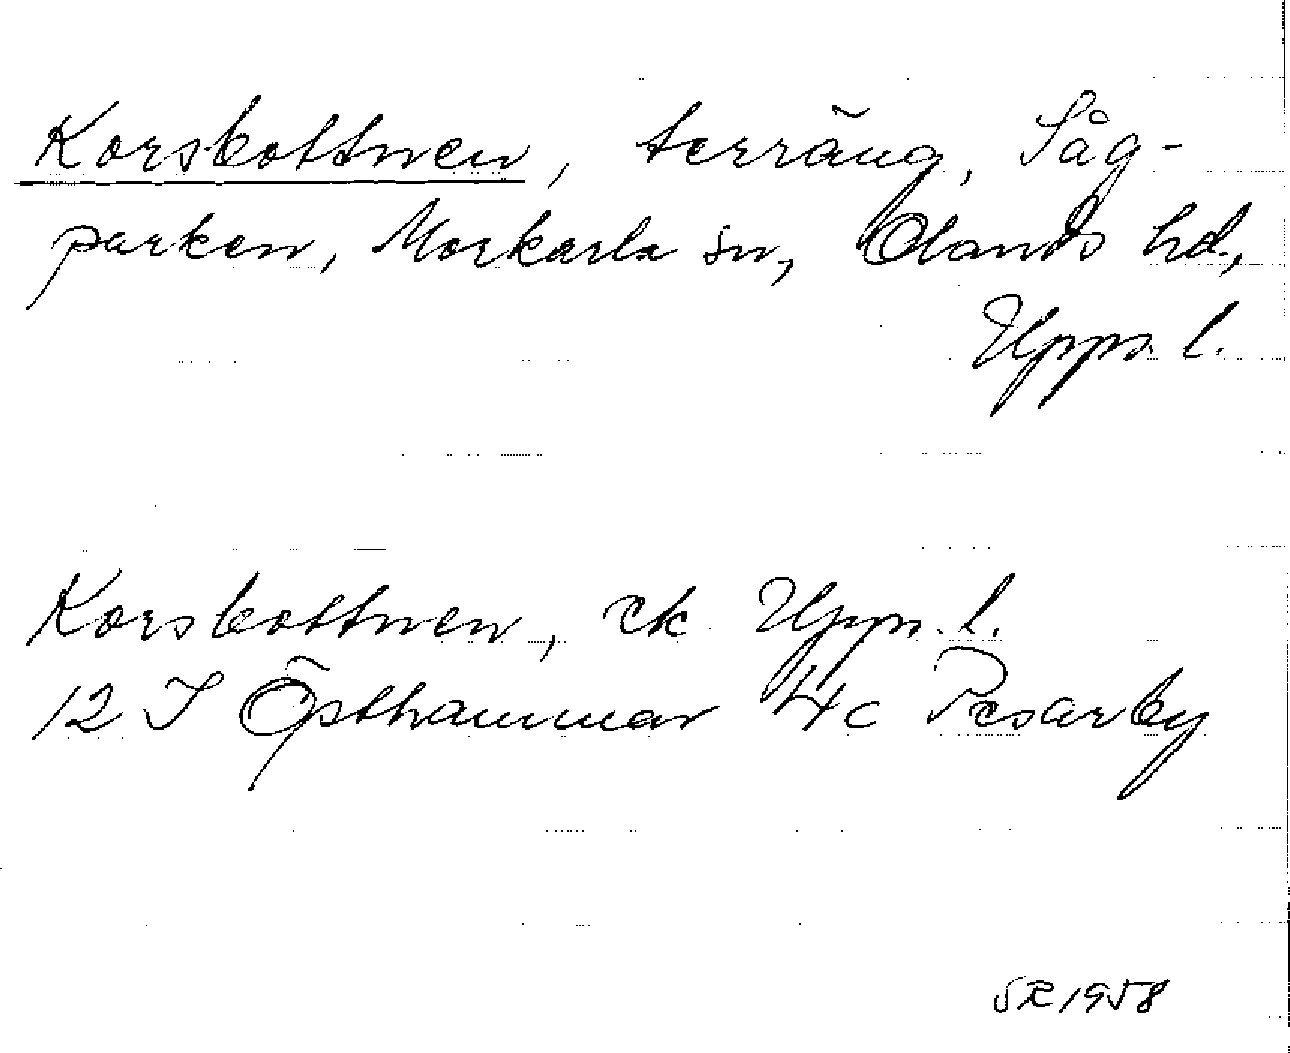 Korsbottnen, terräng, Såg-
parken, Morkarla sn, Olands hd,
Upps. l.
Korsbottnen, ek Upps. l.
12 I Östhammar 4c Pesarby
SR 1958